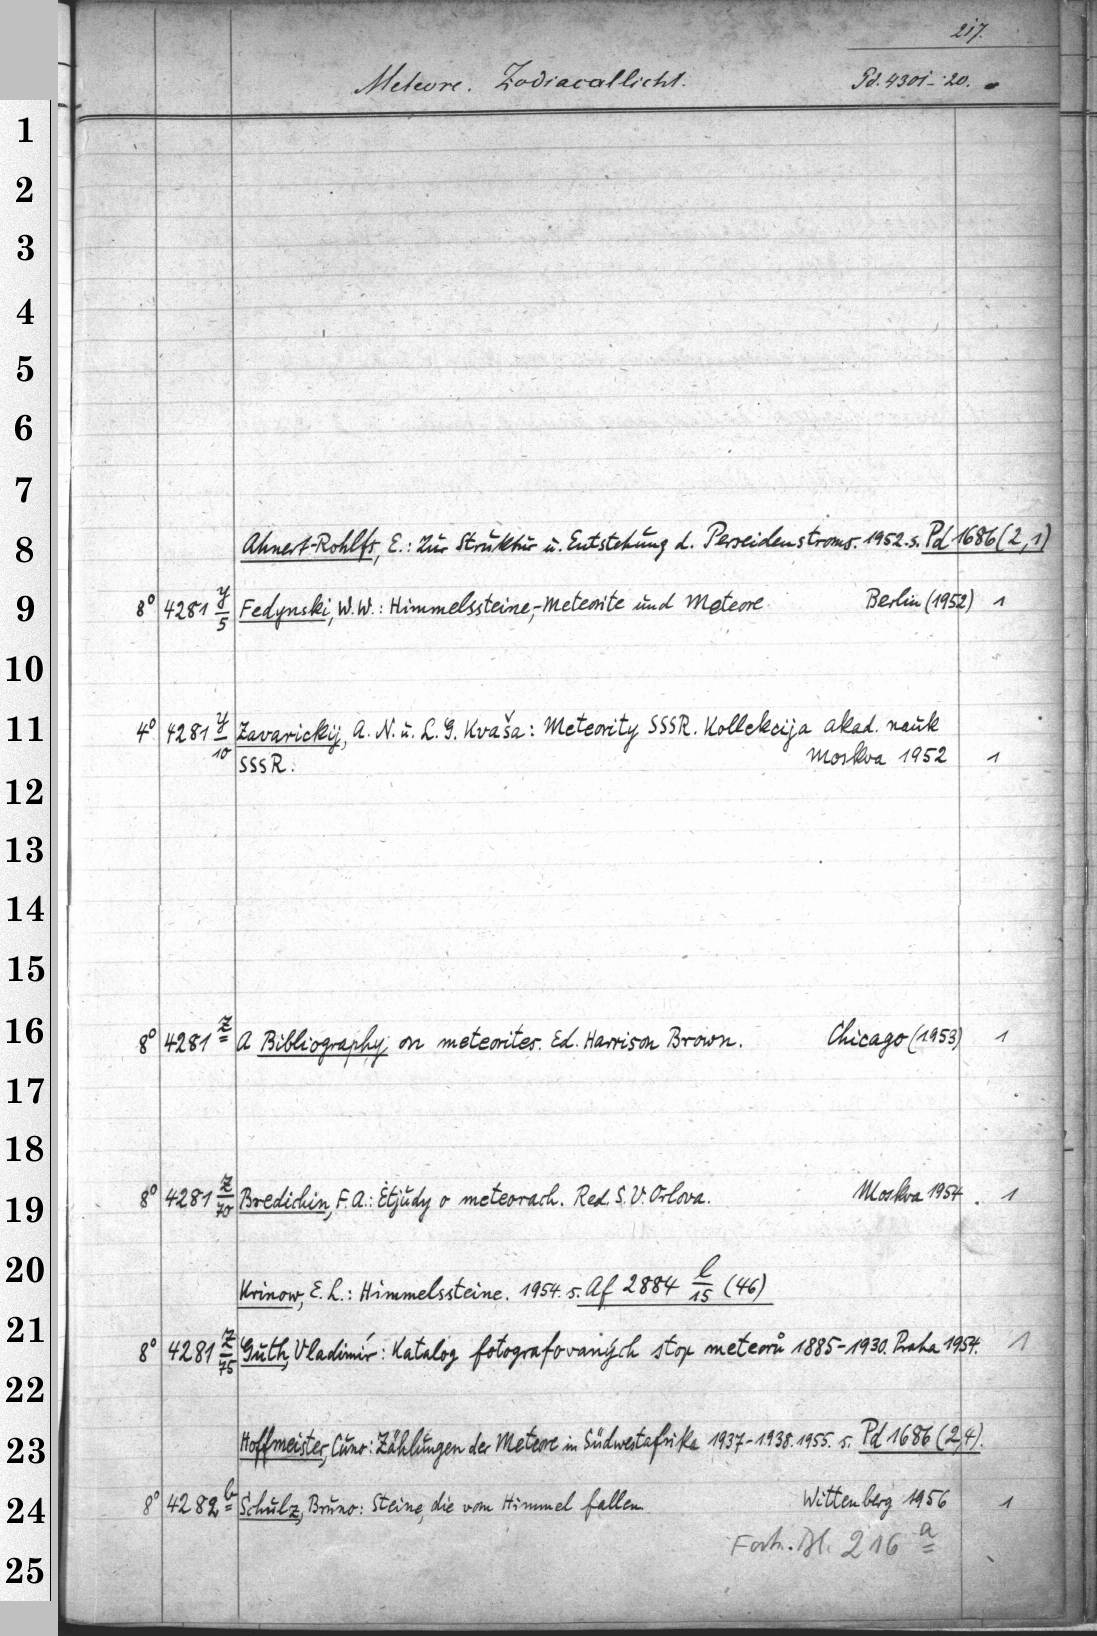 217.
Meteore. Zodiacallicht. Pd. 4301-20.
1
2
3
4
5
6
7
8 Ahnert-Rohlfs, E.: Zur Struktur u. Entstehung d. Perseidenstroms. 1952. s. Pd 1686 (2,1)
9 8° 4281 y/5 Fedynski, W. W.: Himmelssteine,-Meteorite und Meteore. Berlin (1952) 1
10
11 4° 4281 y/10 Zavarickij, A. N. u. L. G. Kvaša: Meteority SSSR. Kollekcija akad. nauk
SSSR. Moskva 1952 1
12
13
14
15
16 8° 4281 z A Bibliography on meteorites. Ed. Harrison Brown. Chicago (1953) 1
17
18
19 8° 4281 z/70 Bredichin, F. A.: Ėtjudy o meteorach. Red. S. V. Orlova. Moskva 1954. 1
20 Krinow, E. L.: Himmelssteine. 1954. s. Af 2884 l/15 (46)
21 8° 4281 z/75 Guth, Vladimír: Katalog fotografovaných stop meteorů 1885-1930. Praha 1954. 1
22
23 Hoffmeister, Cuno: Zählungen der Meteore in Südwestafrika 1937-1938. 1955. s. Pd 1686 (2,4).
24 8° 4282 b Schulz, Bruno: Steine, die vom Himmel fallen Wittenberg 1956 1
Forts. Bl. 216 a
25